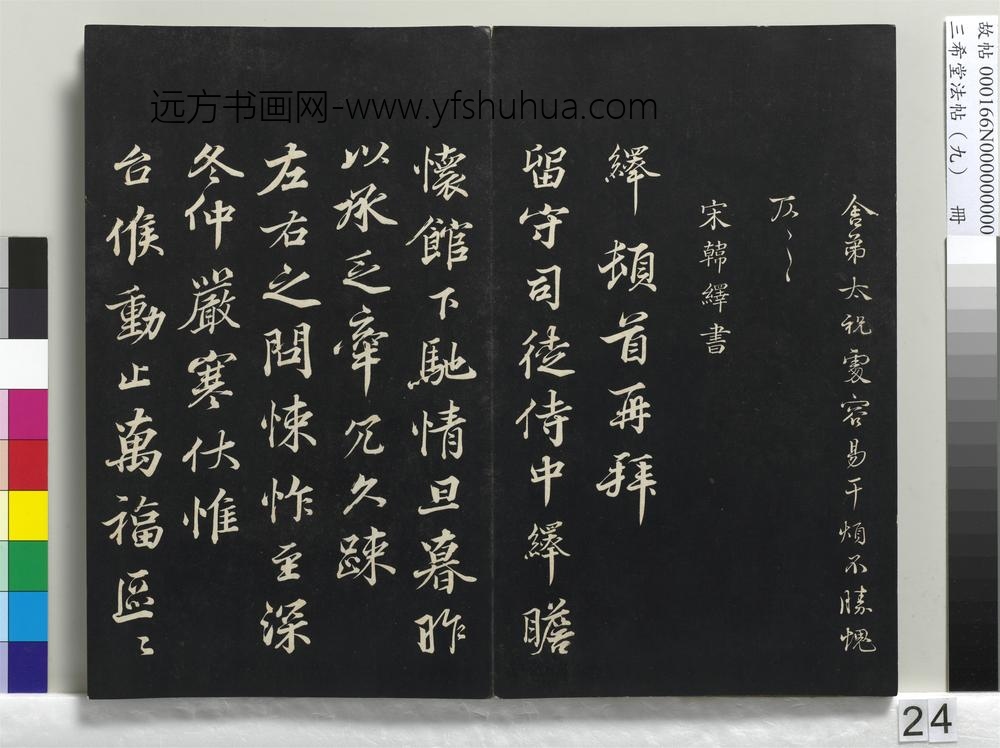 舍弟太祝處容易干煩不勝愧
宋韓繹書
繹頓首再拜
留守司徒侍中繹瞻
懷館下馳情旦暮昨
以承乏牽冗久疎
左右之問悚怍至深
冬仲嚴寒伏惟
台候動止萬福區〻
远方书画网-www.yfshuhua.com
故帖 000166N000000000
三希堂法帖（九） 冊
24